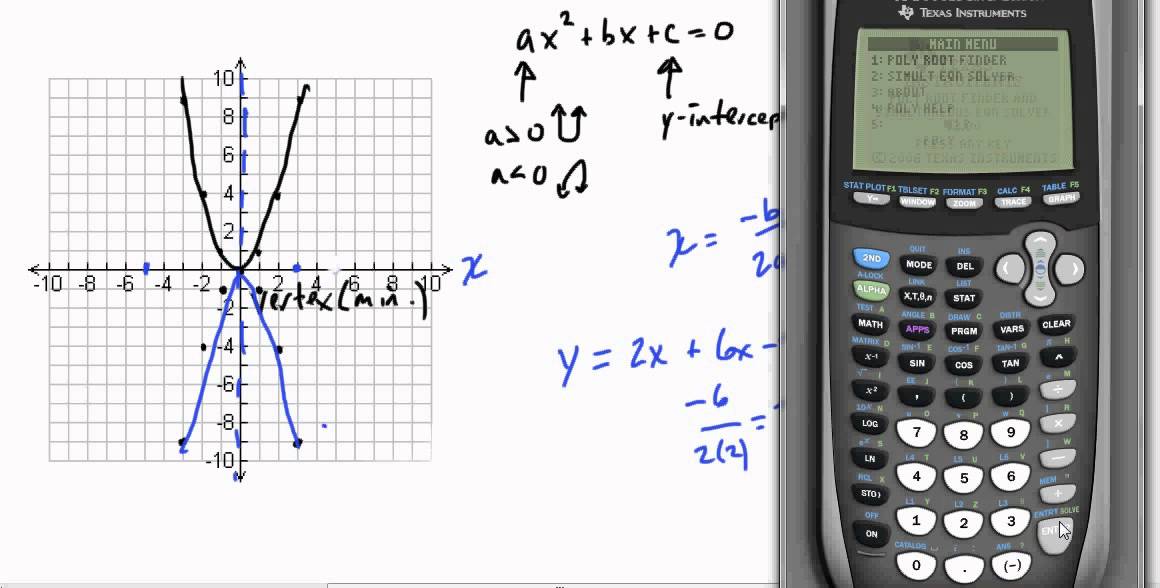 ax² + bx + c = 0
a > 0
a < 0
y-intercep
x = -b
2a
y = 2x + 6x -
-6
2(2)
=
x
vertex (min.)
10
8
6
4
2
-2
-4
-6
-8
-10
-10 -8 -6 -4 -2 2 4 6 8 10
TEXAS INSTRUMENTS
MAIN MENU
1: POLY ROOT FINDER
2: SIMULT EQN SOLVER
3: ABOUT
4: POLY HELP
5:
©2006 TEXAS INSTRUMENTS
STAT PLOT F1 TBLSET F2 FORMAT F3 CALC F4 TABLE F5
Y= WINDOW ZOOM TRACE GRAPH
QUIT INS
2ND MODE DEL
A-LOCK LINK LIST
ALPHA X,T,θ,n STAT
TEST A ANGLE B DRAW C DISTR
MATH APPS PRGM VARS CLEAR
MATRIX D SIN⁻¹ E COS⁻¹ F TAN⁻¹ G H
x⁻¹ SIN COS TAN ^
√ I EE J { K } L e M
x² , ( ) ÷
10ˣ N u O v P w Q [ R
LOG 7 8 9 ×
eˣ S L4 T L5 U L6 V ] W
LN 4 5 6 −
RCL X L1 Y L2 Z L3 θ MEM "
STO› 1 2 3 +
OFF CATALOG ⎵ i : ANS ? ENTRY SOLVE
ON 0 . (-) ENT